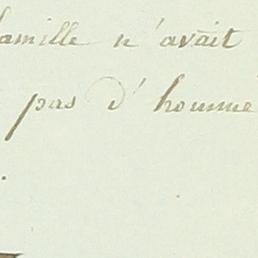 famille n'avait
pas d'homme
.